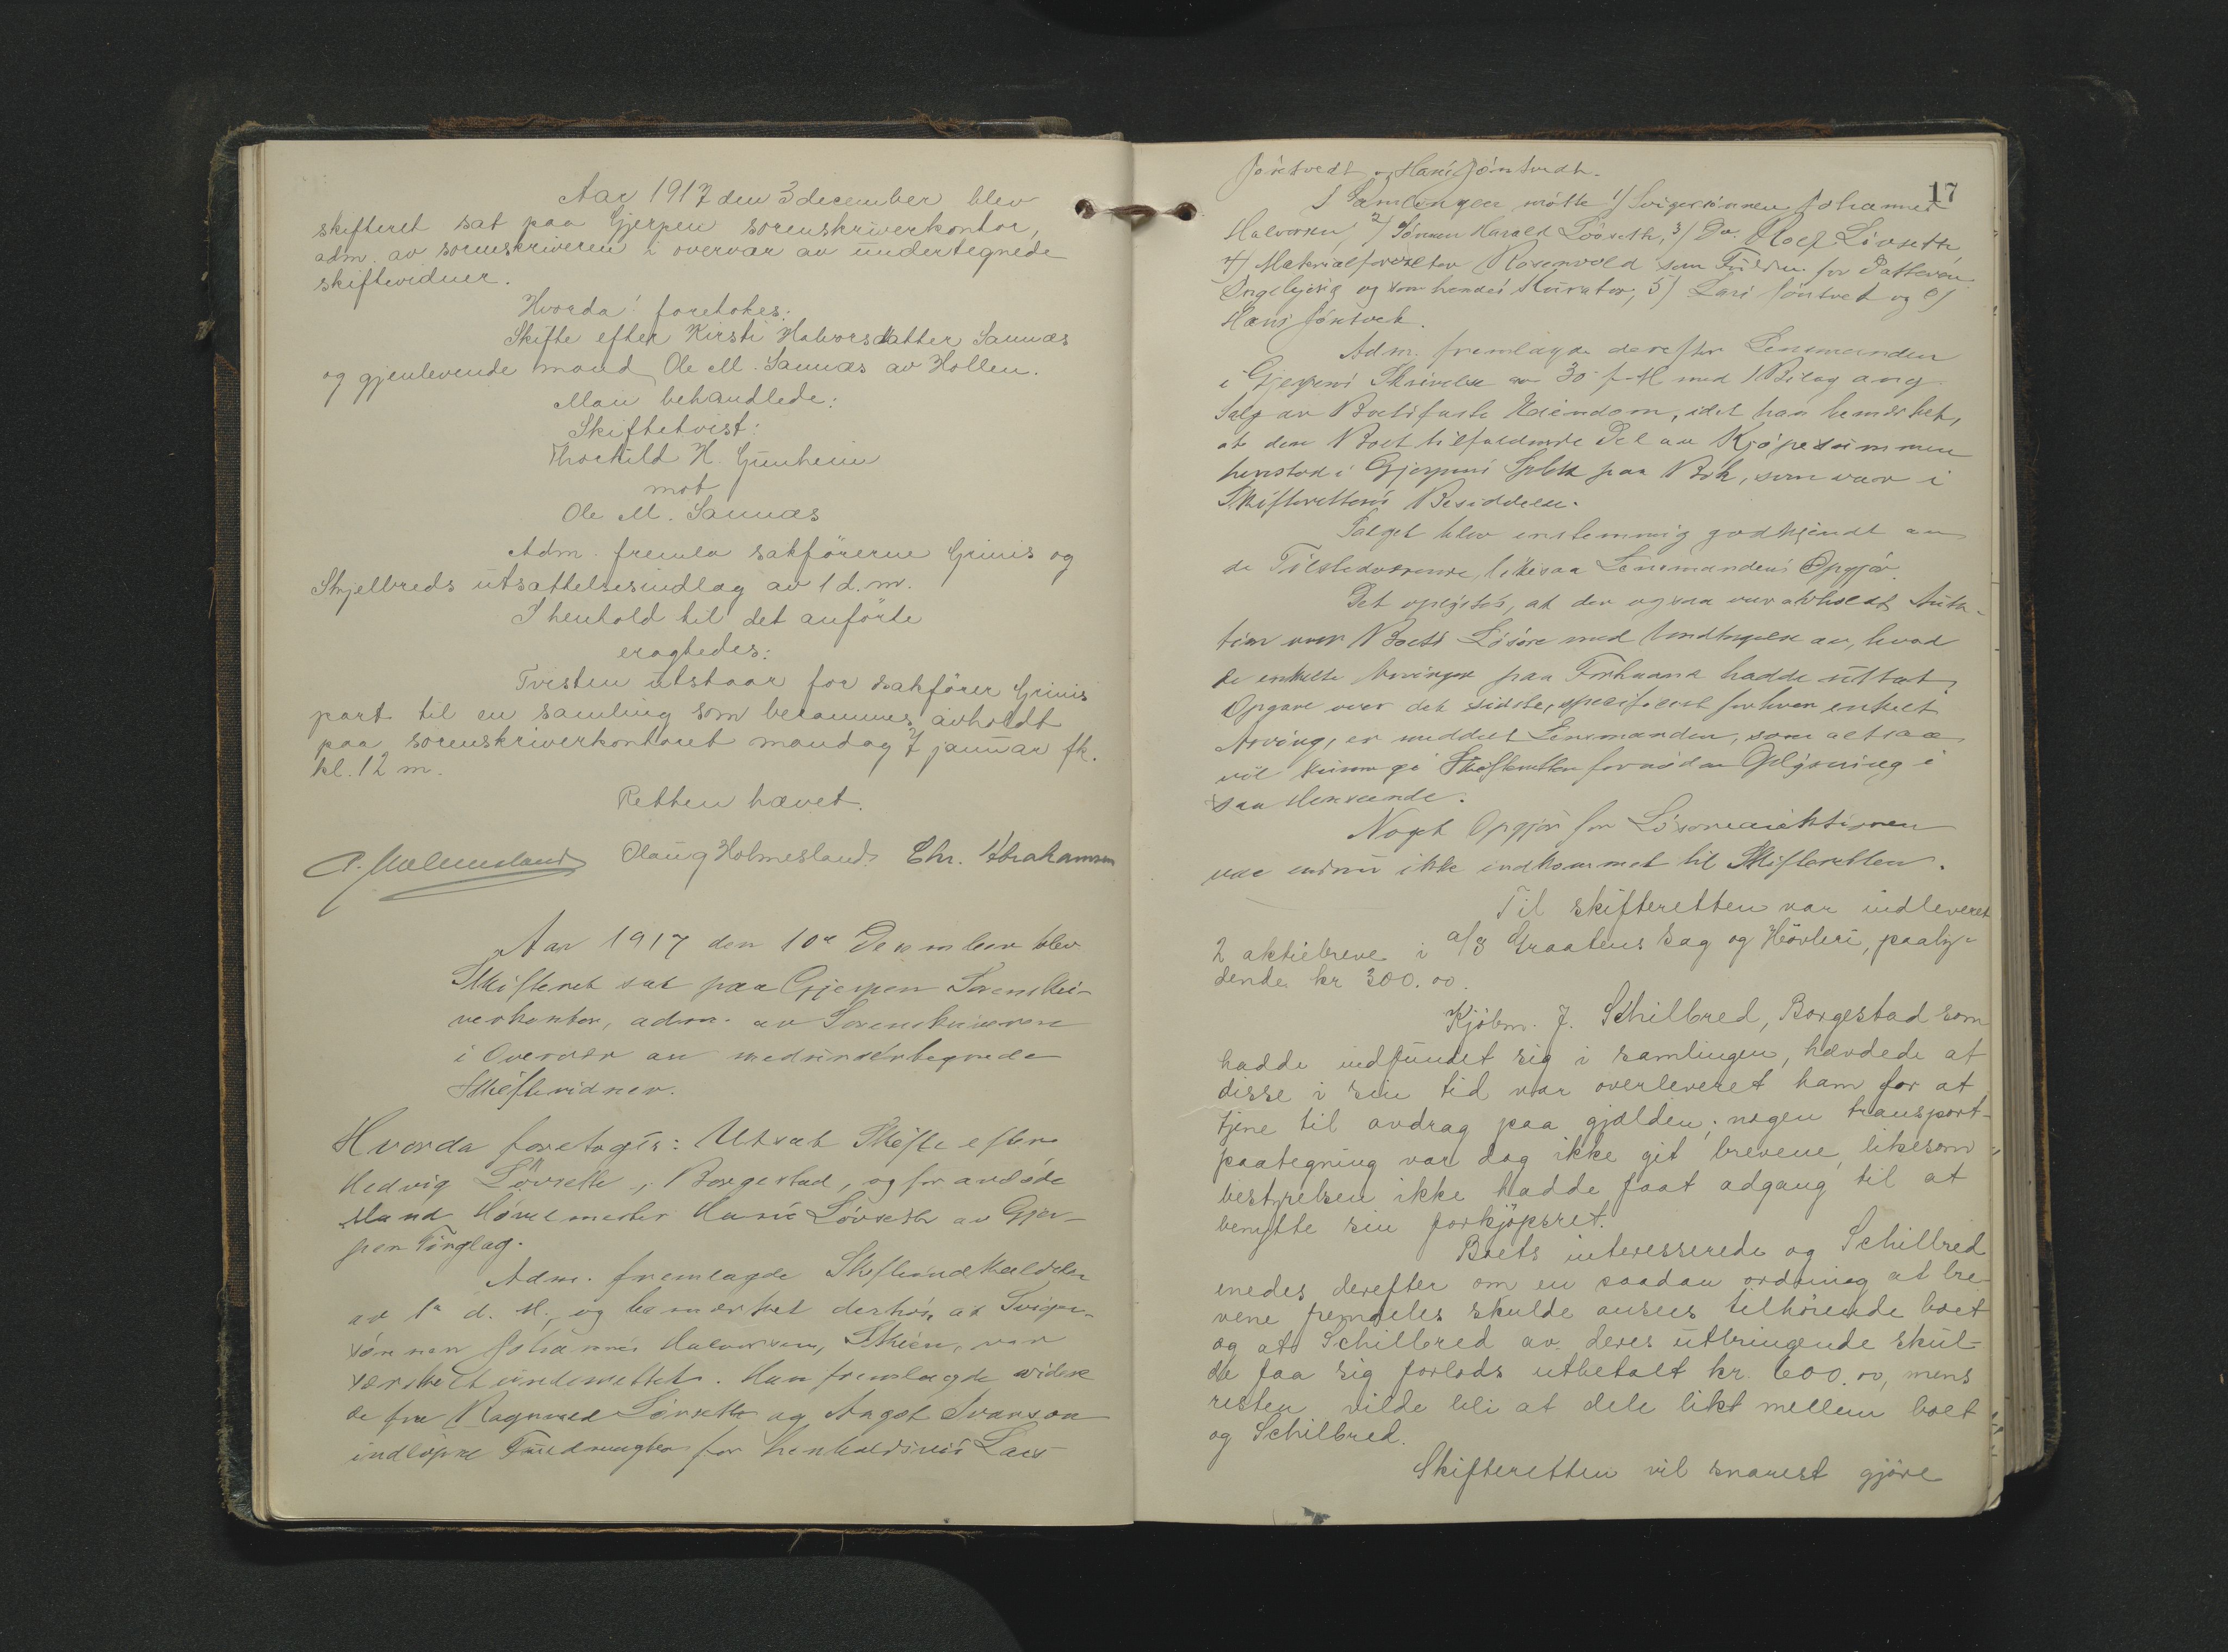 Aar 1917 den 3 december blev
skifteret sat paa Gjerpen sorenskriverkontor,
adm. av sorenskriveren i overvær av undertegnede
skiftevidner.
Hvorda foretokes:
Skifte efter Kirsti Halvorsdatter Sannæs
og gjenlevende mand Ole M. Sannæs av Hollen.
Man behandlede:
Skiftetvist:
Thorkild H. Gunheim
mot
Ole M. Sannæs
Adm. fremla sakförerne Grinis og
Skjelbreds utsættelsesindlæg av 1 d.m.
I henhold til det anförte
eragtedes:
Tvisten utstaar for sakfører Grinis
part til en samling som berammes avholdt
paa sorenskriverkontoret mandag 7/ januar fk.
kl. 12 m.
Retten hævet.
Olaug Holmesland Chr. Abrahamsen
Aar 1917 den 10de December blev
Skifteret sat paa Gjerpen Sorenskri-
verkontor, adm. av Sorenskriveren
i Overvær av medundertegnede
Skiftevidner.
Hvorda foretoges: Utsat Skifte efter
Hedvig Lövseth, Borgestad, og før avdöde
Mand Hövelmester Løvseth av Gjer-
pen Tinglag.
Adm. fremlagde Skifteindkaldelse
av 1ste d. M., og bemærket derhos, at Sviger-
sönnen Johannes Halvorsen, Skien, var
særskilt underrettet. Han fremlagde videre
de fra Ragnvald Lövseth og Aagot Svanson
indløpne Fuldmagter for henholdsvis Lars
17
Jöntvedt og Hans Jöntvedt.
I Samlingen mötte 1/ Svigersönnen Johannes
Halvorsen, 2/ Sönnen Harald Lövseth, 3/ Do. Rolf Lövseth,
4/ Materialforvalter Rosenvold som Fuldm. for Datteren
og som hendes Kurator, 5/ Lars Jöntvet og 6/
Hans Jöntvet.
Adm. fremlagde derefter Lensmanden
i Gjerpens Skrivelse av 30 f.M. med 1 Bilag ang
Salg av Boets faste Eiendom, idet han bemerket,
at den Boet tilfaldende Del av Kjöpesummen
henstod i Gjerpens Spbk paa Bok, som var i
Skifterettens Besiddelse.
Salget blev enstemmig godkjendt av
de Tilstedeværende, likesaa Lensmandens Opgjör.
Det oplystes, at der ogsaa var avholdt Auk-
tion over Boets Lösöre med Undtagelse av, hvad
de enkelte Arvinger paa Forhaand hadde uttat.
Opgave over det sidste, specificert for hver enkelt
Arving, er meddelt Lensmanden, som altsaa
vil kunne gi Skifteretten fornöden Oplysning i
saa Henseende.
Noget Opgjör for Lösöreauktionen
var endnu ikke indkommet til Skifteretten.
Til skifteretten var indleveret
2 aktiebreve i a/s Graatens Sag og Hövleri, paaly-
dende kr 300.00.
Kjöbm. J. Schilbred, Borgestad som
hadde indfundet sig i samlingen, hævdede at
disse i sin tid var overleveret ham for at
tjene til avdrag paa gjælden; nogen transport-
paategning var dog ikke git brevene, likesom
bestyrelsen ikke hadde faat adgang til at
benytte sin forkjöpsret.
Boets interesserede og Schilbred
enedes derefter om en saadan ordning at bre-
vene fremdeles skulde ansees tilhörende boet
og at Schilbred av deres utbringende skul-
de faa sig forlods utbetalt kr. 600.00, mens
resten vilde bli at dele likt mellem boet
og Schilbred.
Skifteretten vil snarest gjöre